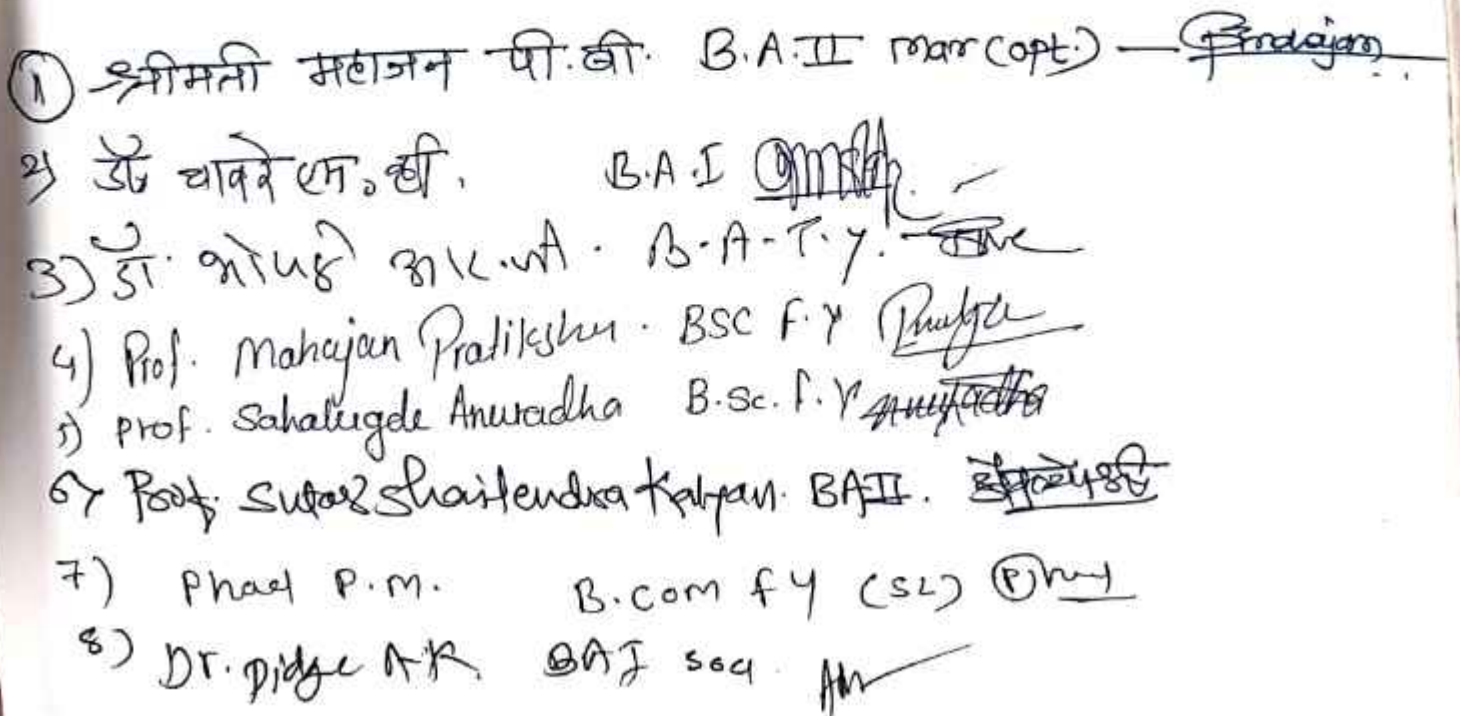 1 श्रीमती महाजन पी.बी. B.A.II mar (opt.) —
2) डॉ चावरे एम. व्ही. B.A.I
3) डॉ. भोपळे आर.जी. B.A.T.Y.
4) Prof. Mahajan Pratiksha. BSC F.Y
5) Prof. Sahalugde Anuradha B.Sc. F.Y Anuradha
6) Prof. Sutar Shailendra Kalyan. BAII.
7) Phad P.M. B.com f y (SL)
8) Dr. Pidge A K BAI